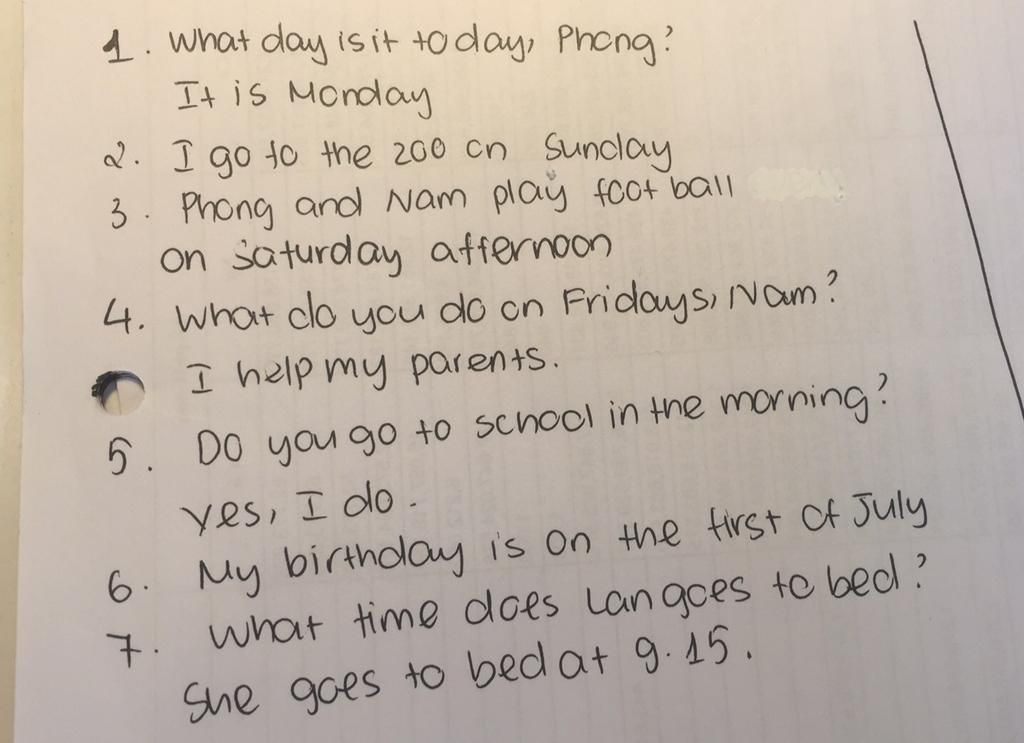 1. What day is it today, Phong?
It is Monday
2. I go to the zoo on Sunday
3. Phong and Nam play football
on Saturday afternoon
4. What do you do on Fridays, Nam?
I help my parents.
5. Do you go to school in the morning?
yes, I do.
6. My birthday is on the first of July
7. What time does Lan goes to bed?
She goes to bed at 9.15.